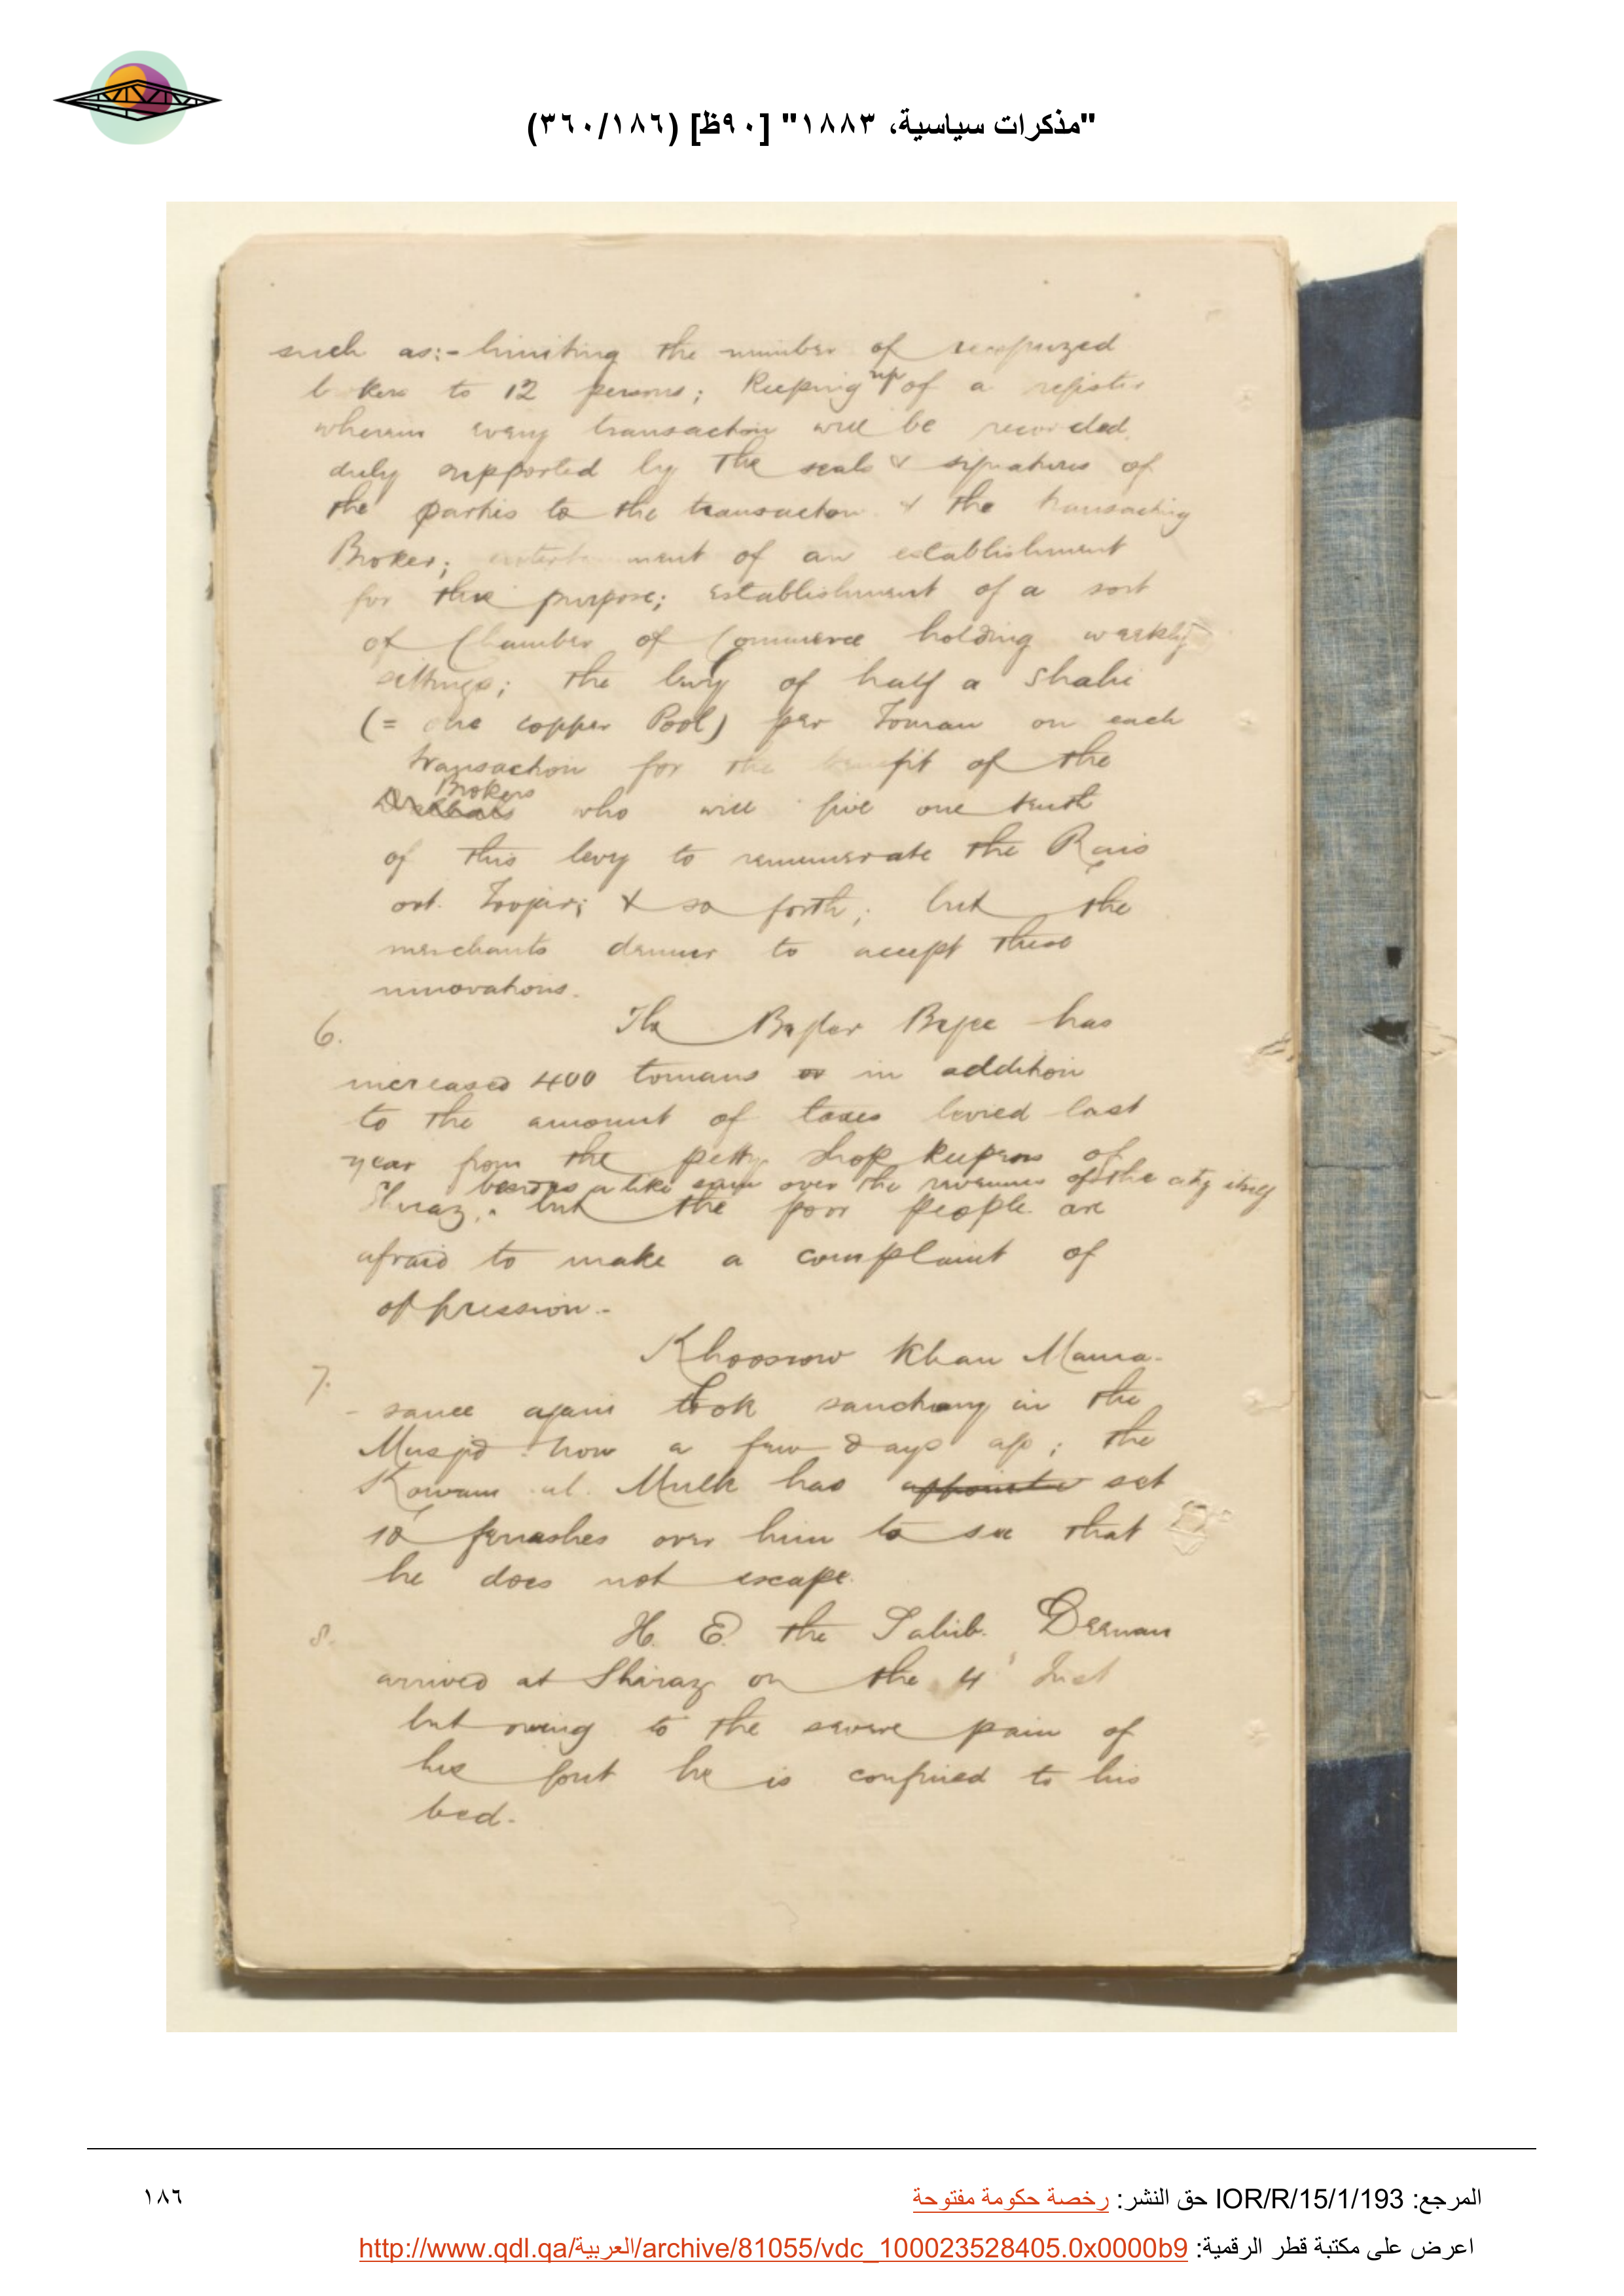 "مذكرات سياسية، ١٨٨٣" [٩٠ظ] (٣٦٠/١٨٦)
such as:- limiting the number of recognized
b kers to 12 persons; Keeping up of a register
wherein every transaction will be recorded,
duly supported by the seals & signatures of
the parties to the transaction & the transacting
Broker; entert ment of an establishment
for this purpose; establishment of a sort
of Chamber of Commerce holding weekly
sittings; the levy of half a Shahi
(= one copper Pool) per Toman on each
transaction for the benefit of the
Brokers
who will give one tenth
of this levy to remunerate the Rais
oot. Toojar; & so forth; but the
merchants demur to accept these
innovations.
6. The Begler Begee has
increased 400 tomans or in addition
to the amount of taxes levied last
year from the petty shop keepers of
besides a like sum over the revenues of the city itself
Shiraz, but the poor people are
afraid to make a complaint of
oppression.-
7. Khoosrow Khan Mama-
-sanee again took sanctuary in the
Musjid now a few days ago; the
Kowam ul. Mulk has appointed set
10 ferrashes over him to see that
he does not escape.
8. H. E. the Sahib. Deewan
arrived at Shiraz on the 4 Inst
but owing to the severe pain of
his gout he is confined to his
bed.
المرجع: IOR/R/15/1/193 حق النشر: رخصة حكومة مفتوحة
١٨٦
اعرض على مكتبة قطر الرقمية: http://www.qdl.qa/العربية/archive/81055/vdc_100023528405.0x0000b9